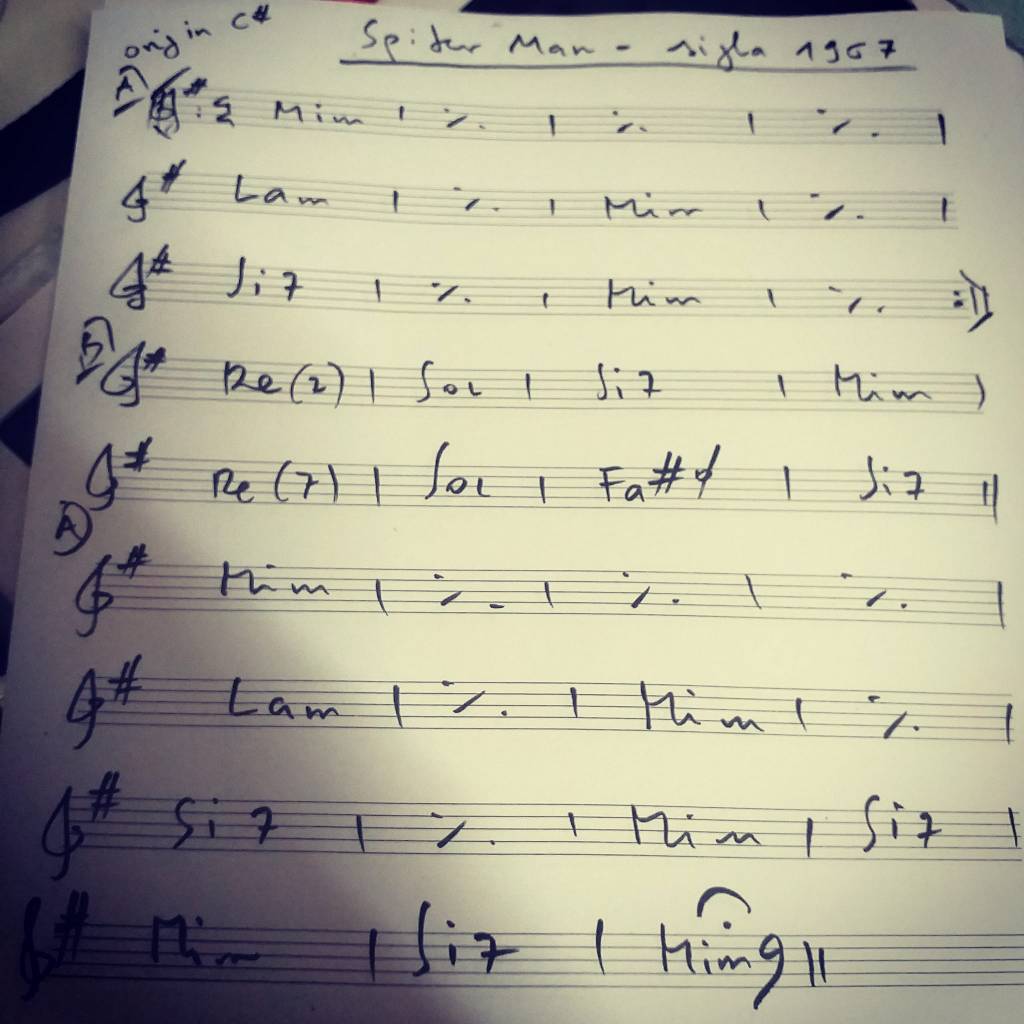 origin C#
Spider Man - sigla 1967
A) Mim | ٪ | ٪ | ٪ |
Lam | ٪ | Mim | ٪ |
Si7 | ٪ | Mim | ٪ :||
B) Re(7) | Sol | Si7 | Mim |
Re(7) | Sol | Fa#ø | Si7 ||
A)
Mim | ٪ | ٪ | ٪ |
Lam | ٪ | Mim | ٪ |
Si7 | ٪ | Mim | Si7 |
Mim | Si7 | Mim9 ||